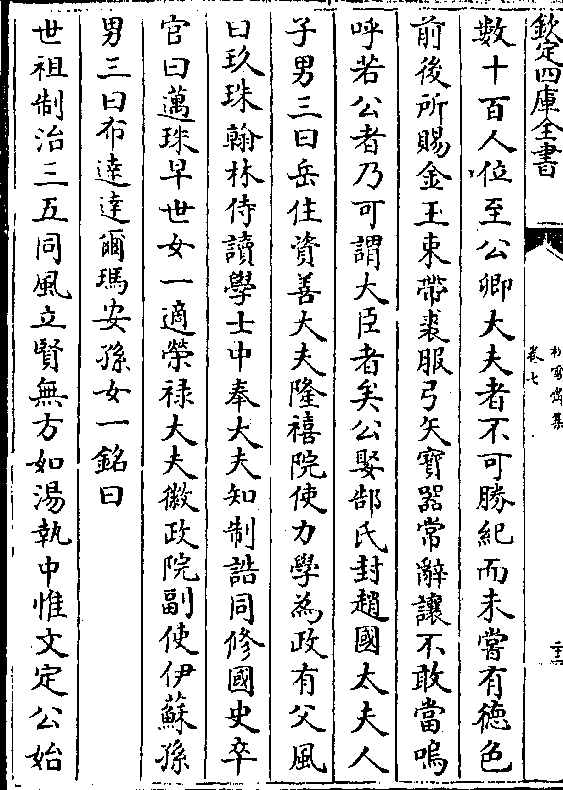 欽定四庫全書
松雪齋集
卷七
數十百人位至公卿大夫者不可勝紀而未嘗有德色
前後所賜金玉束帶裘服弓矢寶器常辭讓不敢當嗚
呼若公者乃可謂大臣者矣公娶郜氏封趙國太夫人
子男三曰岳住資善大夫隆禧院使力學為政有父風
曰玖珠翰林侍讀學士中奉大夫知制誥同修國史卒
官曰邁珠早世女一適榮禄大夫徽政院副使伊蘇孫
男三曰布達達爾瑪安孫女一銘曰
世祖制治三五同風立賢無方如湯執中惟文定公始